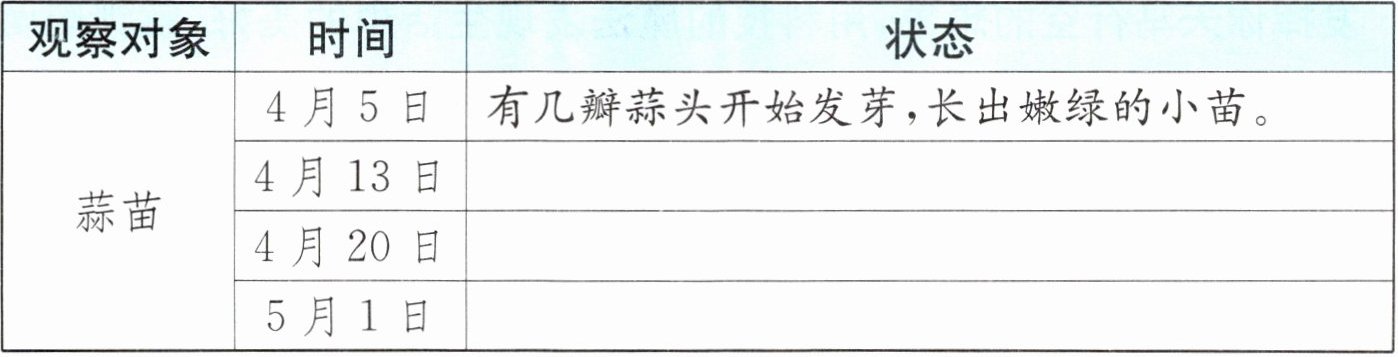 观察对象 时间 状态
4月5日 有几瓣蒜头开始发芽,长出嫩绿的小苗。
4月13日
蒜苗
4月20日
5月1日